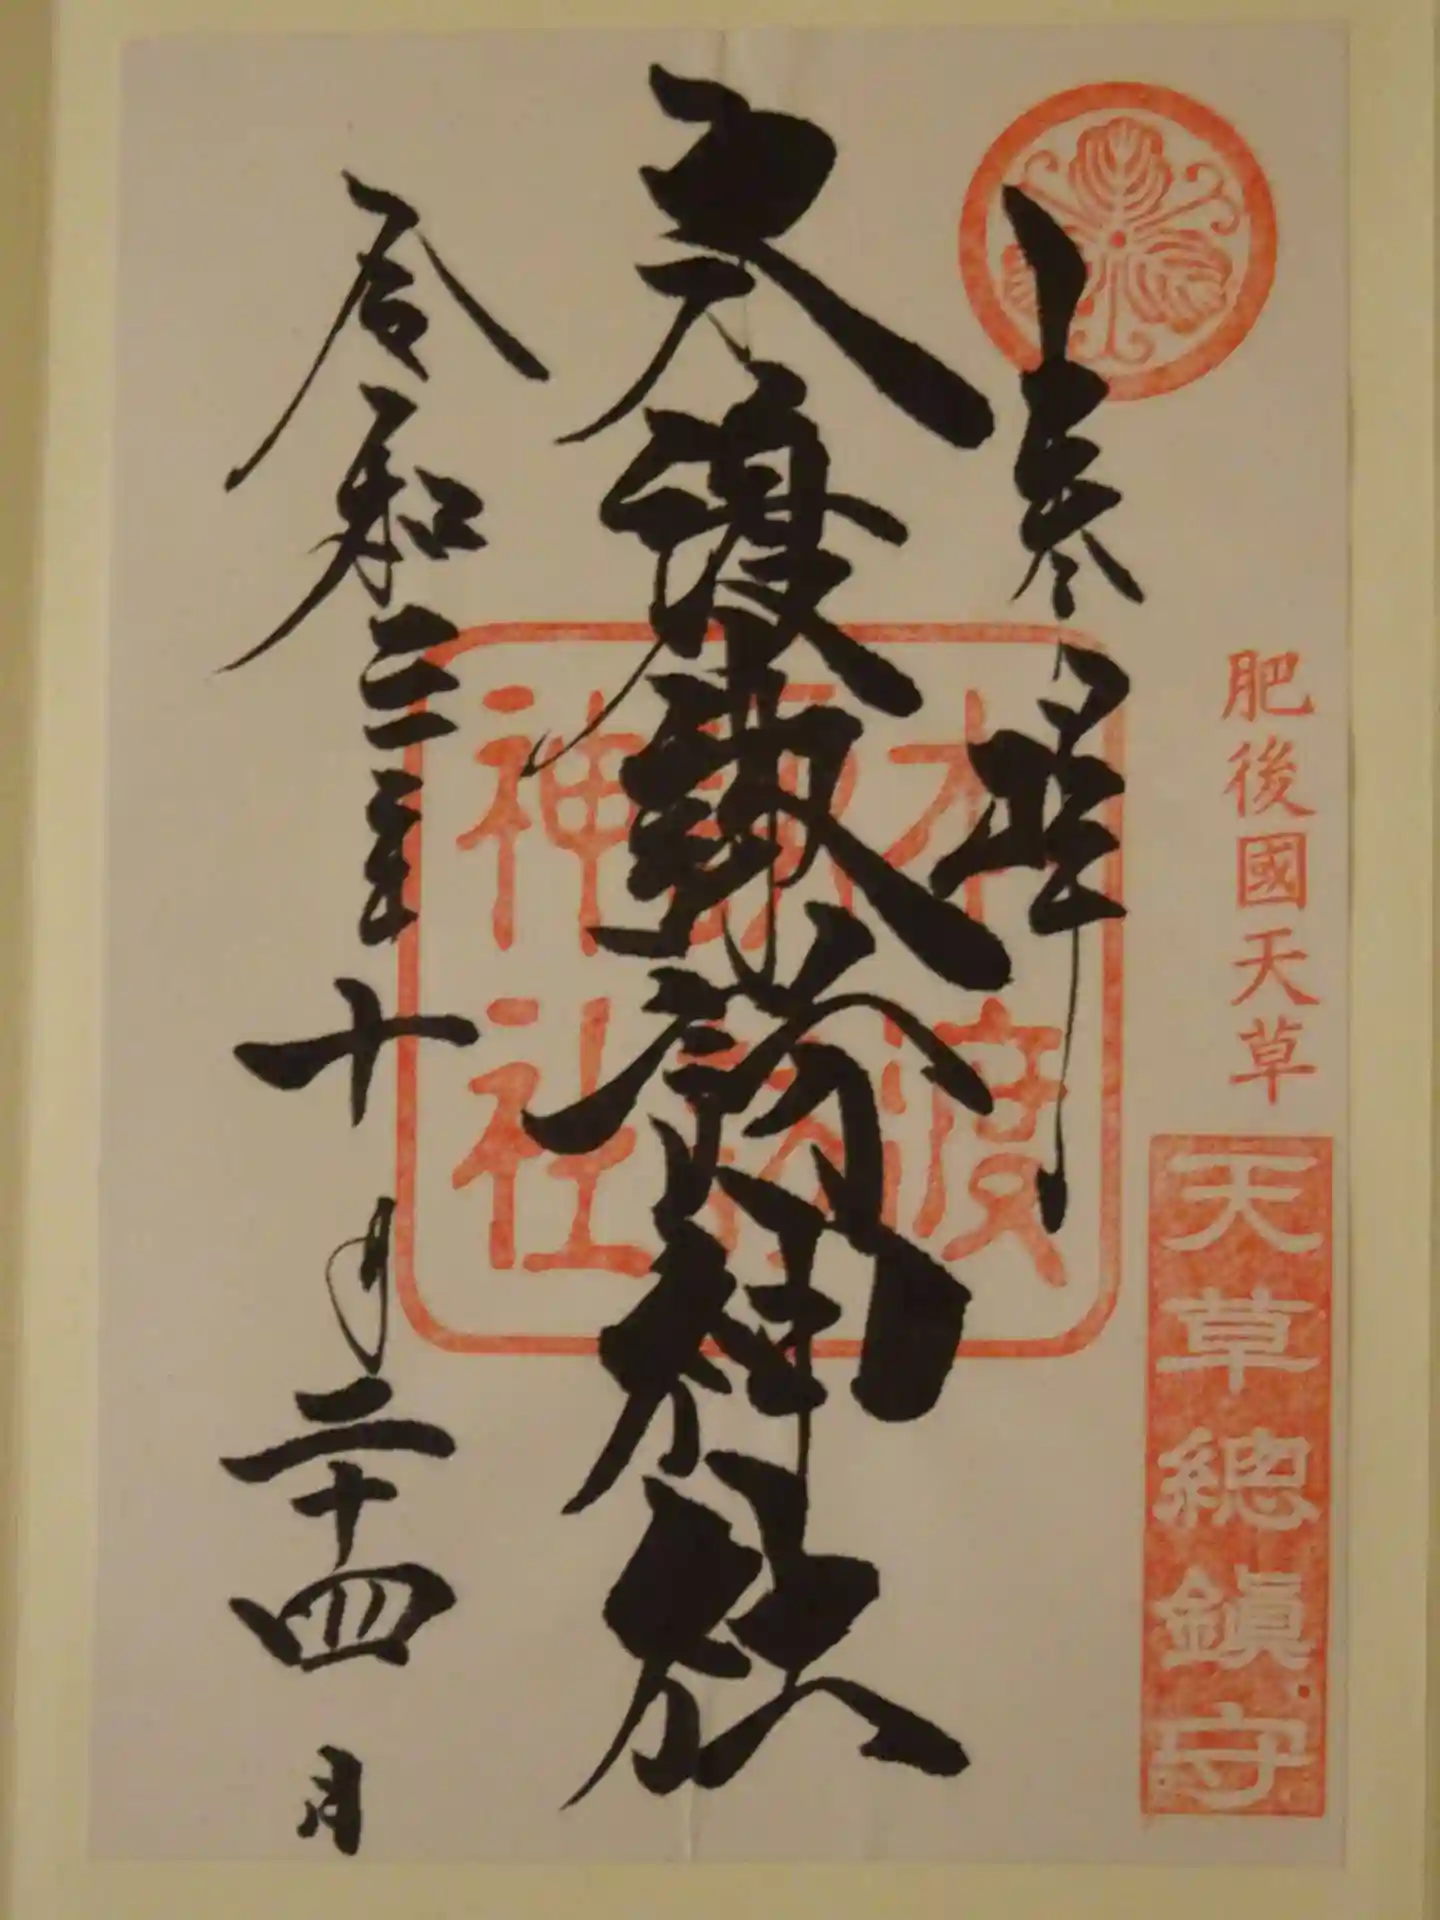 肥後國天草
天草總鎭守
奉拝
本渡諏訪神社
本渡
諏訪
神社
令和三年十月二十四日